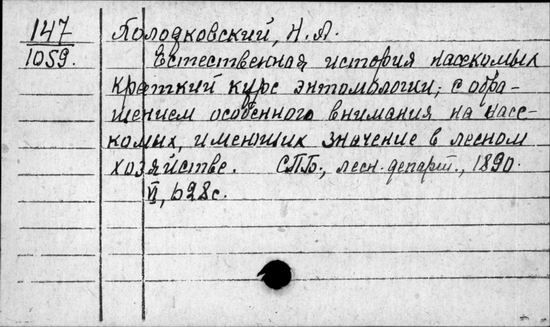 147
1059.
Холодковский, Н.А.
Естественная история насекомых
краткий курс энтомологии; с обра-
щением особенного внимания на насе-
комых, имеющих значение в лесном
хозяйстве. СПБ., лесн. департ., 1890.
VI, 628с.